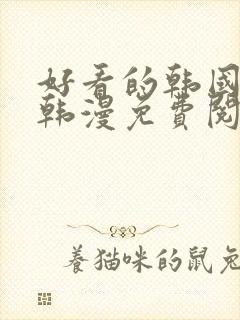 好看的韩国
韩漫免費閱
養猫咪的鼠兔